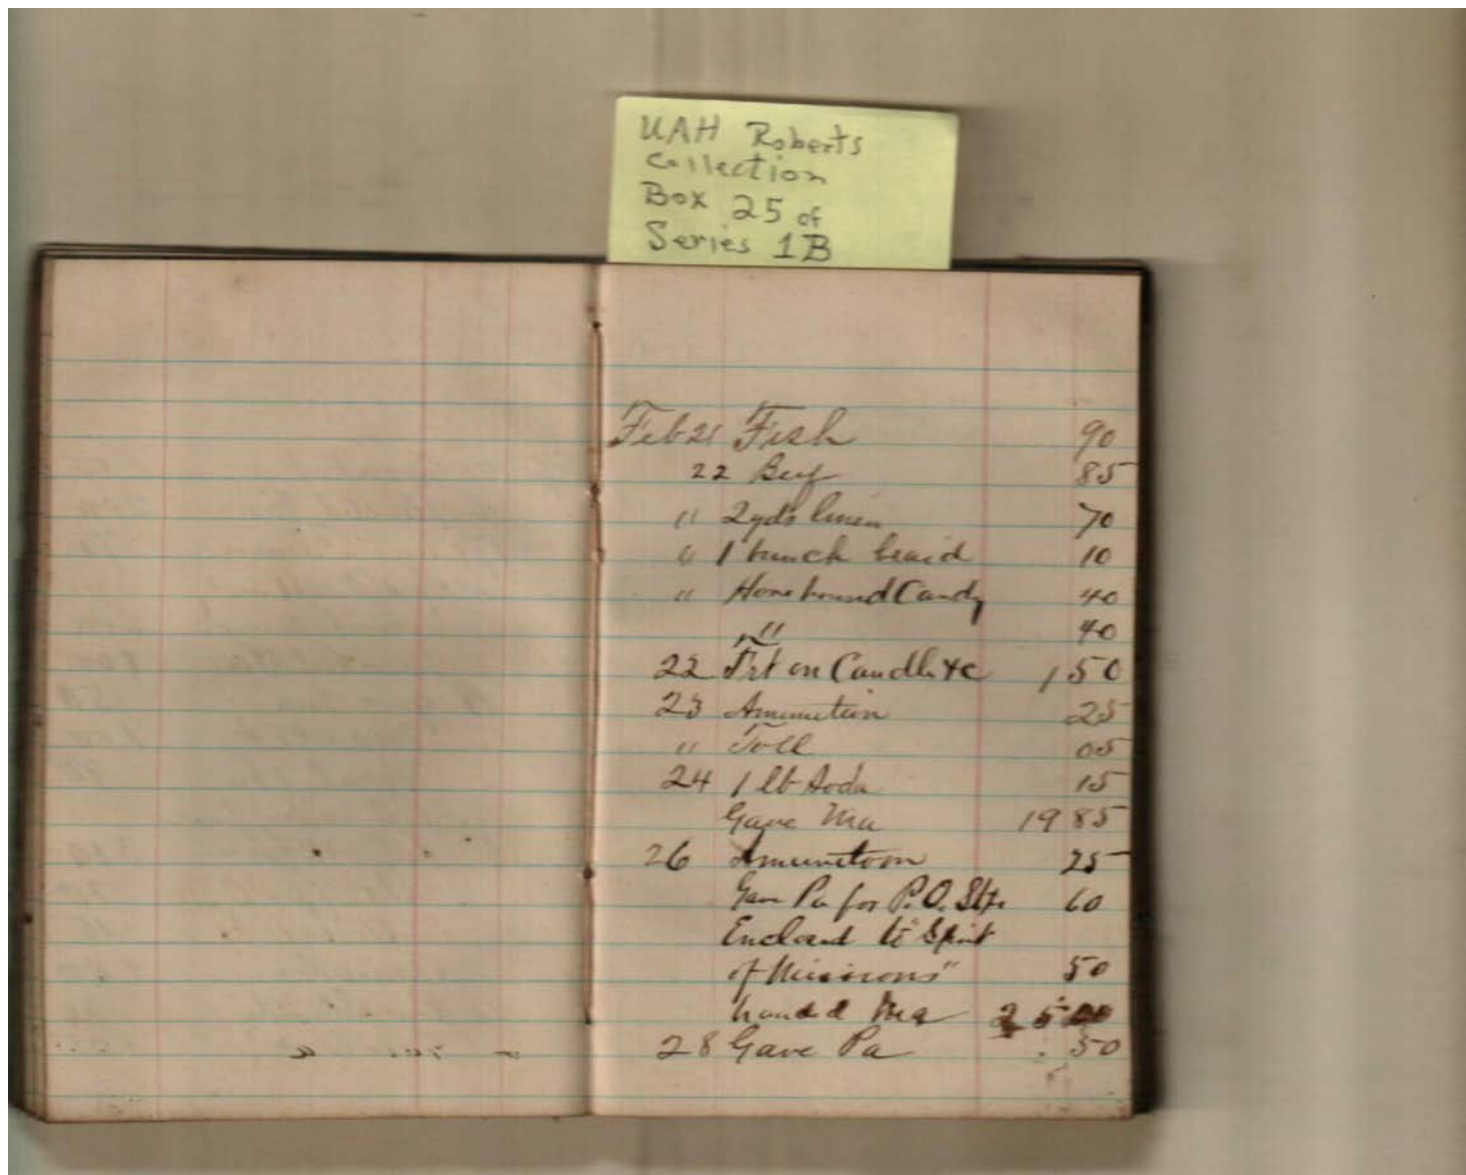 UAH Roberts
Collection
Box 25 of
Series 1B
Feb 21 Fish 90
22 Beef 85
" 2 yds linen 70
" 1 bunch braid 10
" Horehound Candy 40
" 40
22 Frt on Candle &c 1 50
23 Amunition 25
" Toll 05
24 1 lb Soda 15
Gave Ma 19 85
26 Amunetion 25
Gave Pa for P.O. 60
Enclosed to "Spirit
of Missions" 50
handed Ma 25 00
28 Gave Pa . 50